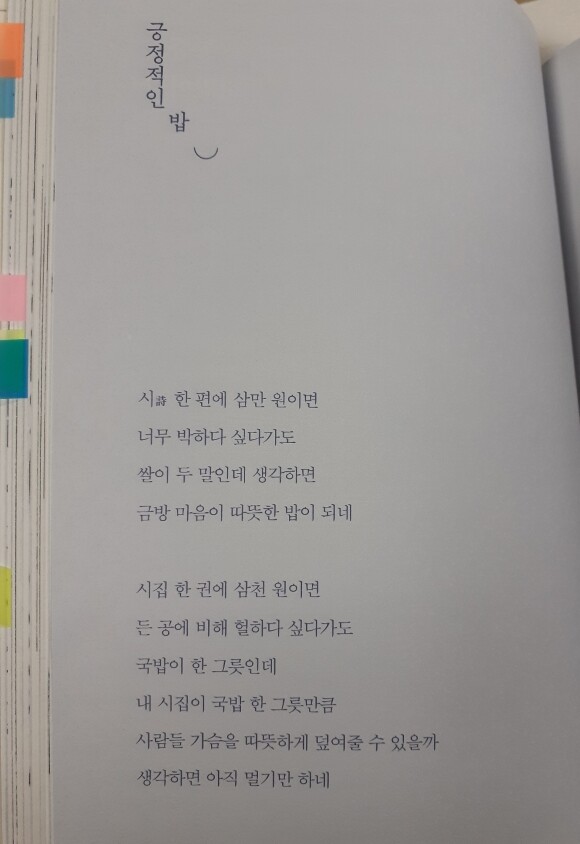 긍정적인 밥
시詩 한 편에 삼만 원이면
너무 박하다 싶다가도
쌀이 두 말인데 생각하면
금방 마음이 따뜻한 밥이 되네
시집 한 권에 삼천 원이면
든 공에 비해 헐하다 싶다가도
국밥이 한 그릇인데
내 시집이 국밥 한 그릇만큼
사람들 가슴을 따뜻하게 덮여줄 수 있을까
생각하면 아직 멀기만 하네